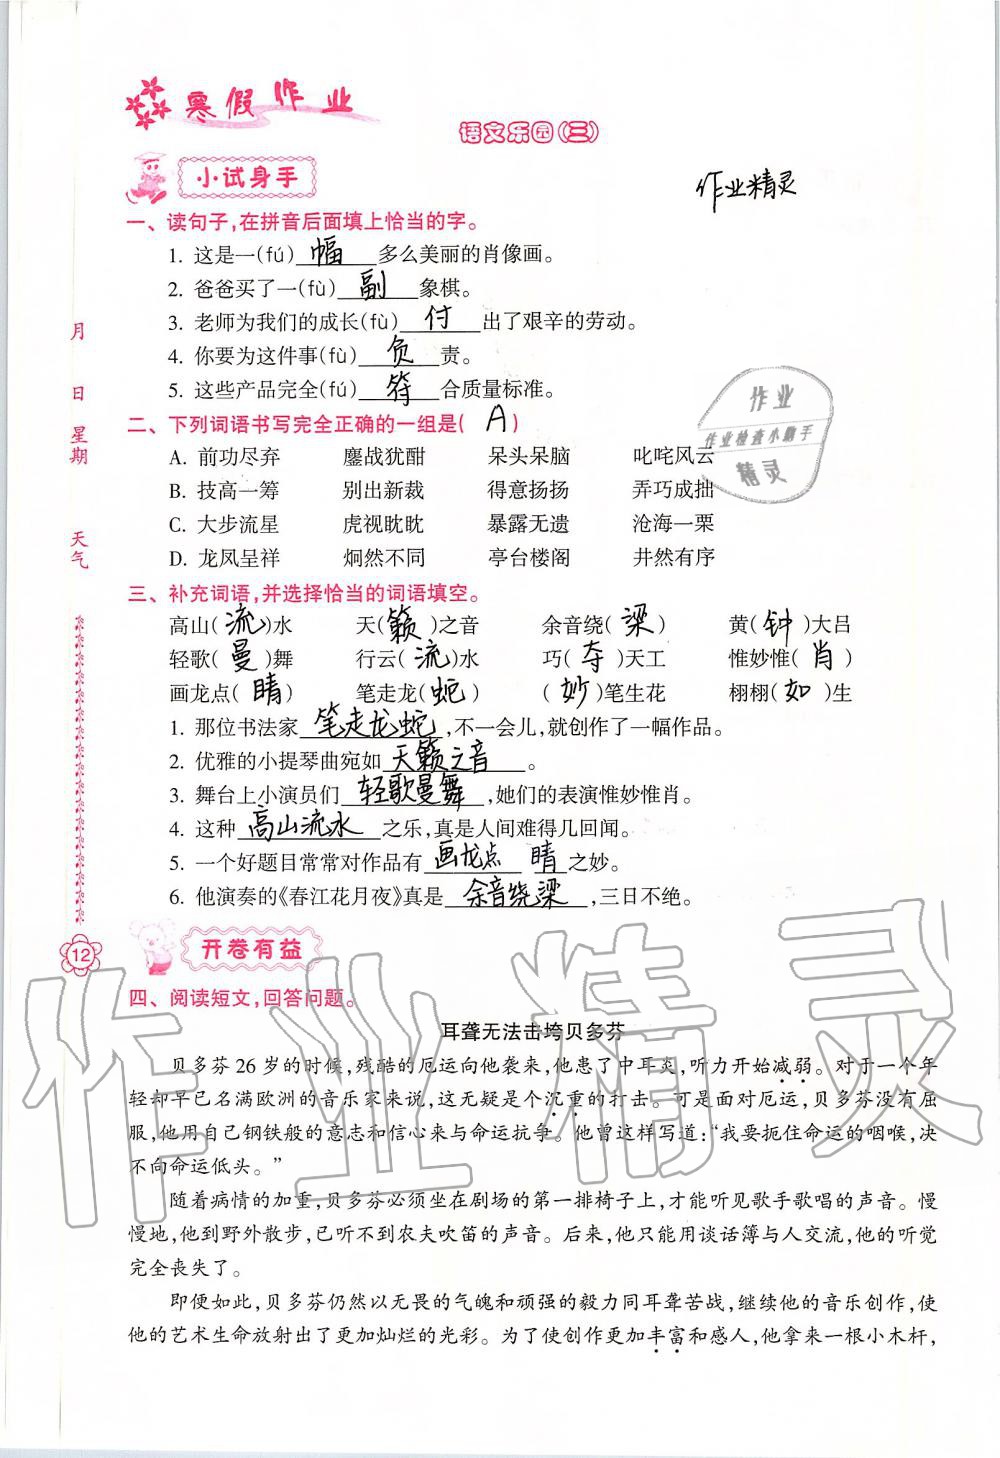 寒假作业
语文乐园(三)
小试身手
作业精灵
一、读句子,在拼音后面填上恰当的字。
1. 这是一(fú) 幅 多么美丽的肖像画。
2. 爸爸买了一(fù) 副 象棋。
3. 老师为我们的成长(fù) 付 出了艰辛的劳动。
4. 你要为这件事(fù) 负 责。
5. 这些产品完全(fú) 符 合质量标准。
二、下列词语书写完全正确的一组是( A )
A. 前功尽弃 鏖战犹酣 呆头呆脑 叱咤风云
B. 技高一筹 别出新裁 得意扬扬 弄巧成拙
C. 大步流星 虎视眈眈 暴露无遗 沧海一栗
D. 龙凤呈祥 炯然不同 亭台楼阁 井然有序
三、补充词语,并选择恰当的词语填空。
高山(流)水 天(籁)之音 余音绕(梁) 黄(钟)大吕
轻歌(曼)舞 行云(流)水 巧(夺)天工 惟妙惟(肖)
画龙点(睛) 笔走龙(蛇) (妙)笔生花 栩栩(如)生
1. 那位书法家 笔走龙蛇 ,不一会儿,就创作了一幅作品。
2. 优雅的小提琴曲宛如 天籁之音 。
3. 舞台上小演员们 轻歌曼舞 ,她们的表演惟妙惟肖。
4. 这种 高山流水 之乐,真是人间难得几回闻。
5. 一个好题目常常对作品有 画龙点 睛 之妙。
6. 他演奏的《春江花月夜》真是 余音绕梁 ,三日不绝。
开卷有益
四、阅读短文,回答问题。
耳聋无法击垮贝多芬
贝多芬 26 岁的时候,残酷的厄运向他袭来,他患了中耳炎,听力开始减弱。对于一个年
轻却早已名满欧洲的音乐家来说,这无疑是个沉重的打击。可是面对厄运,贝多芬没有屈
服,他用自己钢铁般的意志和信心来与命运抗争。他曾这样写道:“我要扼住命运的咽喉,决
不向命运低头。”
随着病情的加重,贝多芬必须坐在剧场的第一排椅子上,才能听见歌手歌唱的声音。慢
慢地,他到野外散步,已听不到农夫吹笛的声音。后来,他只能用谈话簿与人交流,他的听觉
完全丧失了。
即便如此,贝多芬仍然以无畏的气魄和顽强的毅力同耳聋苦战,继续他的音乐创作,使
他的艺术生命放射出了更加灿烂的光彩。为了使创作更加丰富和感人,他拿来一根小木杆,
月
日
星期
天气
12
作业
作业检查小助手
精灵
作业精灵